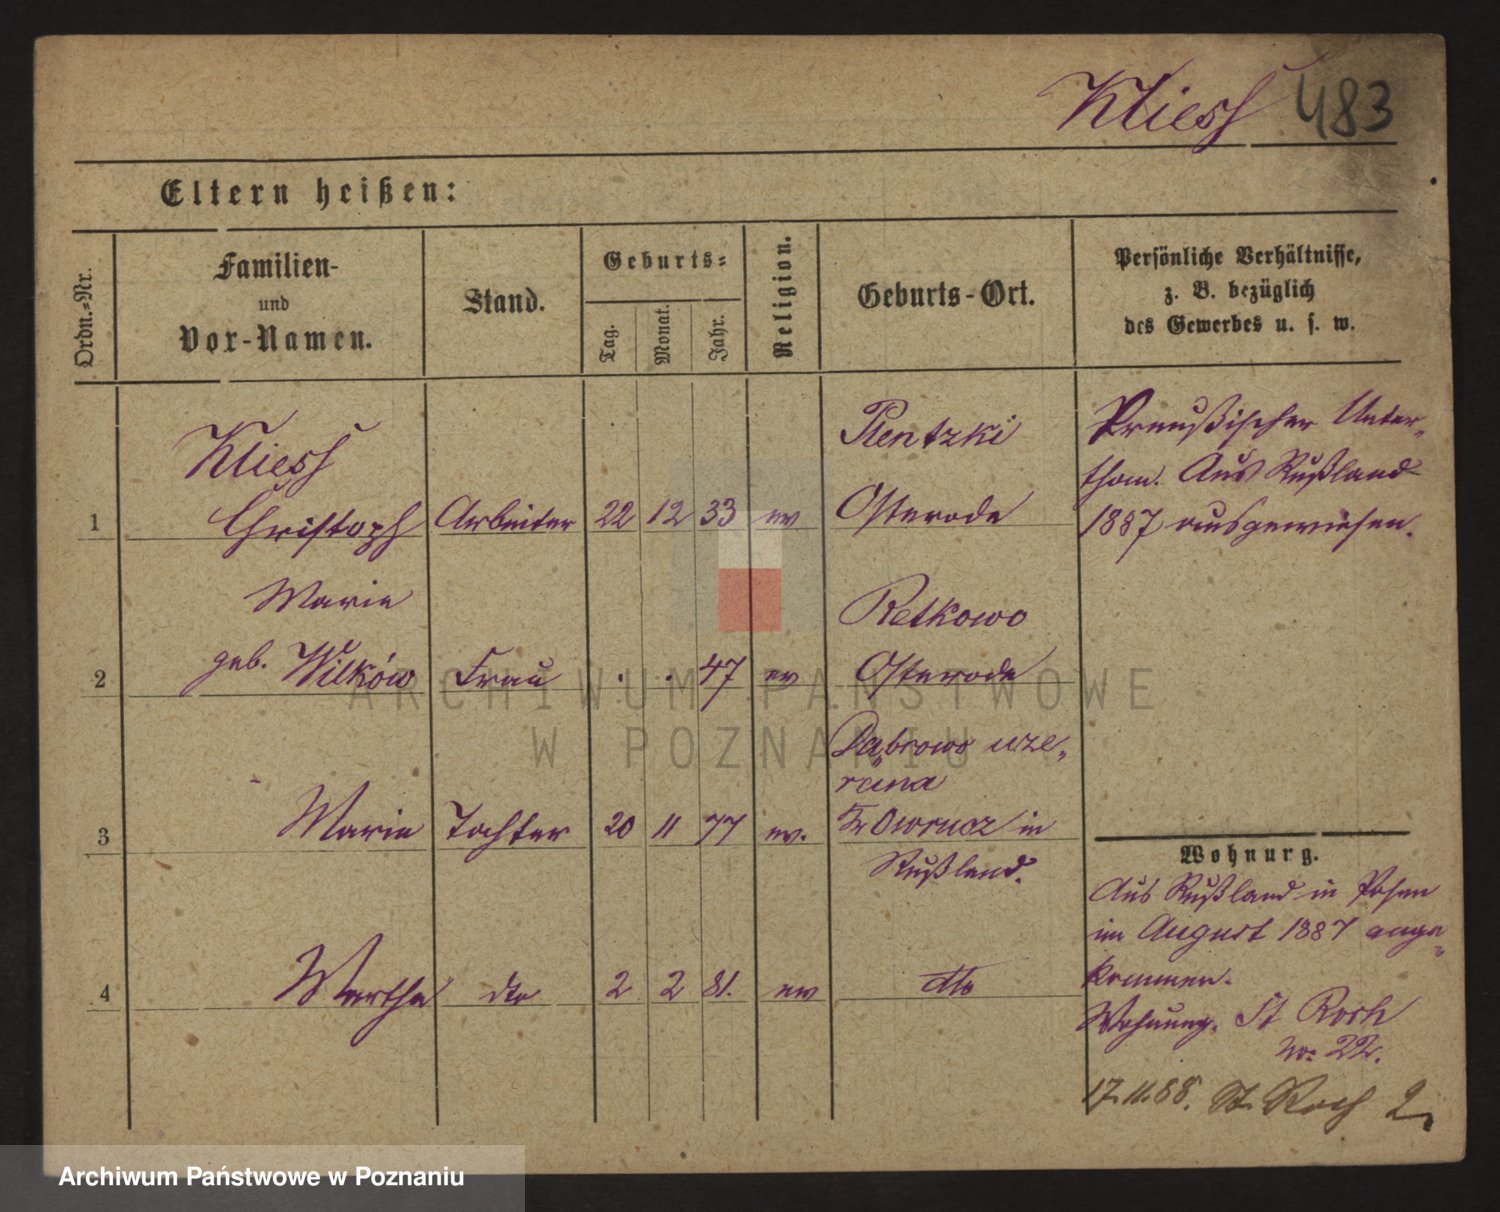 Kliesch 483
Eltern heißen:
Ordn.-Nr.
Familien-
und
Vor-Namen.
Stand.
Geburts-
Tag.
Monat.
Jahr.
Religion.
Geburts-Ort.
Persönliche Verhältnisse,
z. B. bezüglich
des Gewerbes u. s. w.
Kliesch Pientzki
1 Christoph Arbeiter 22 12 33 ev Osterode
Preußischer Unter-
than. Aus Rußland
1887 ausgewiesen.
Marie Retkowo
2 geb. Wilków Frau . . 47 ev Osterode
Dąbrowo
3 Marie Tochter 20 11 77 ev. Kr Owrucz in
Rußland.
4 Martha do 2 2 81. ev dto
Wohnung.
Aus Rußland in Posen
im August 1887 ange-
kommen.
Wohnung. St Roch
No: 22.
17.11.88. St. Roch 2
ARCHIWUM PAŃSTWOWE
W POZNANIU
Archiwum Państwowe w Poznaniu